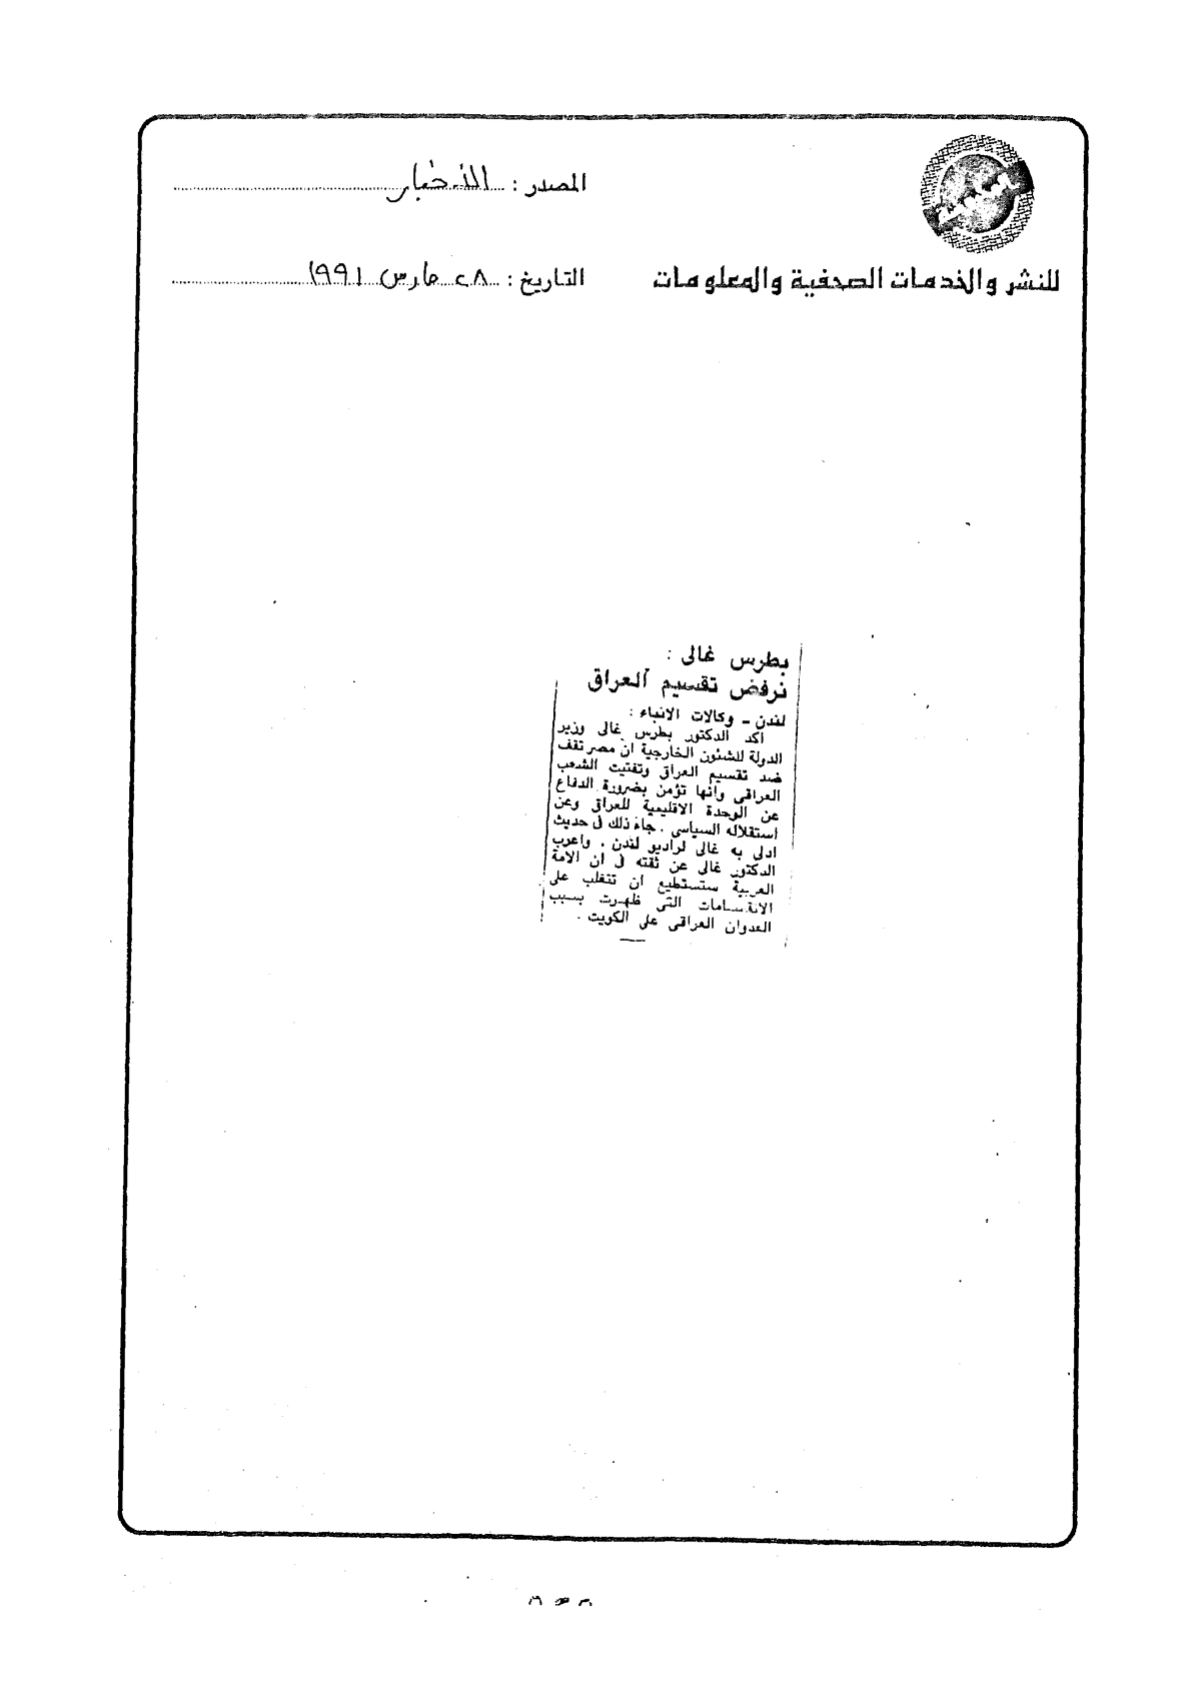 المصدر : الأخبار
للنشر والخدمات الصحفية والمعلومات
التاريخ : ٢٨ مارس ١٩٩١
بطرس غالى :
نرفض تقسيم العراق
لندن - وكالات الانباء :
اكد الدكتور بطرس غالى وزير
الدولة للشئون الخارجية ان مصر تقف
ضد تقسيم العراق وتفتيت الشعب
العراقى وانها تؤمن بضرورة الدفاع
عن الوحدة الاقليمية للعراق وعن
استقلاله السياسى . جاء ذلك فى حديث
ادلى به غالى لراديو لندن . واعرب
الدكتور غالى عن ثقته فى ان الامة
العربية ستستطيع ان تتغلب على
الانقسامات التى ظهرت بسبب
العدوان العراقى على الكويت .